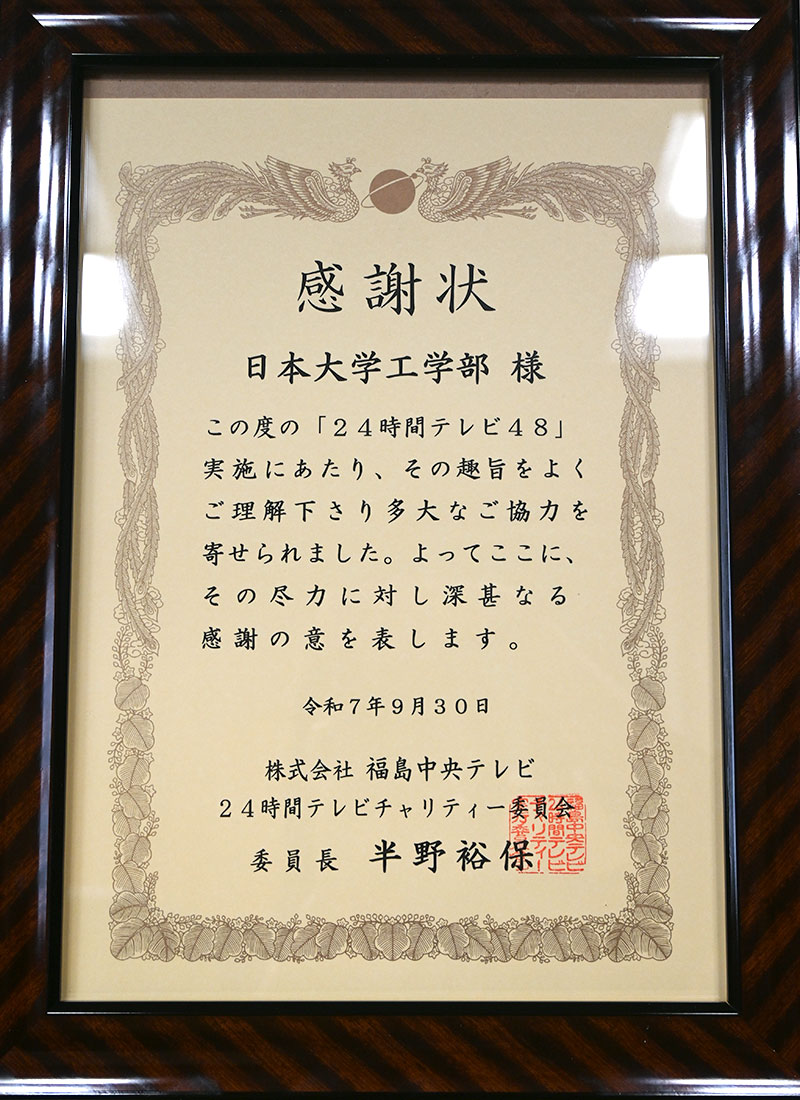 感謝状
日本大学工学部 様
この度の「24時間テレビ48」
実施にあたり、その趣旨をよく
ご理解下さり多大なご協力を
寄せられました。よってここに、
その尽力に対し深甚なる
感謝の意を表します。
令和7年9月30日
株式会社 福島中央テレビ
24時間テレビチャリティー委員会
委員長 半野裕保
福島中央テレビ
24時間テレビ
チャリティー